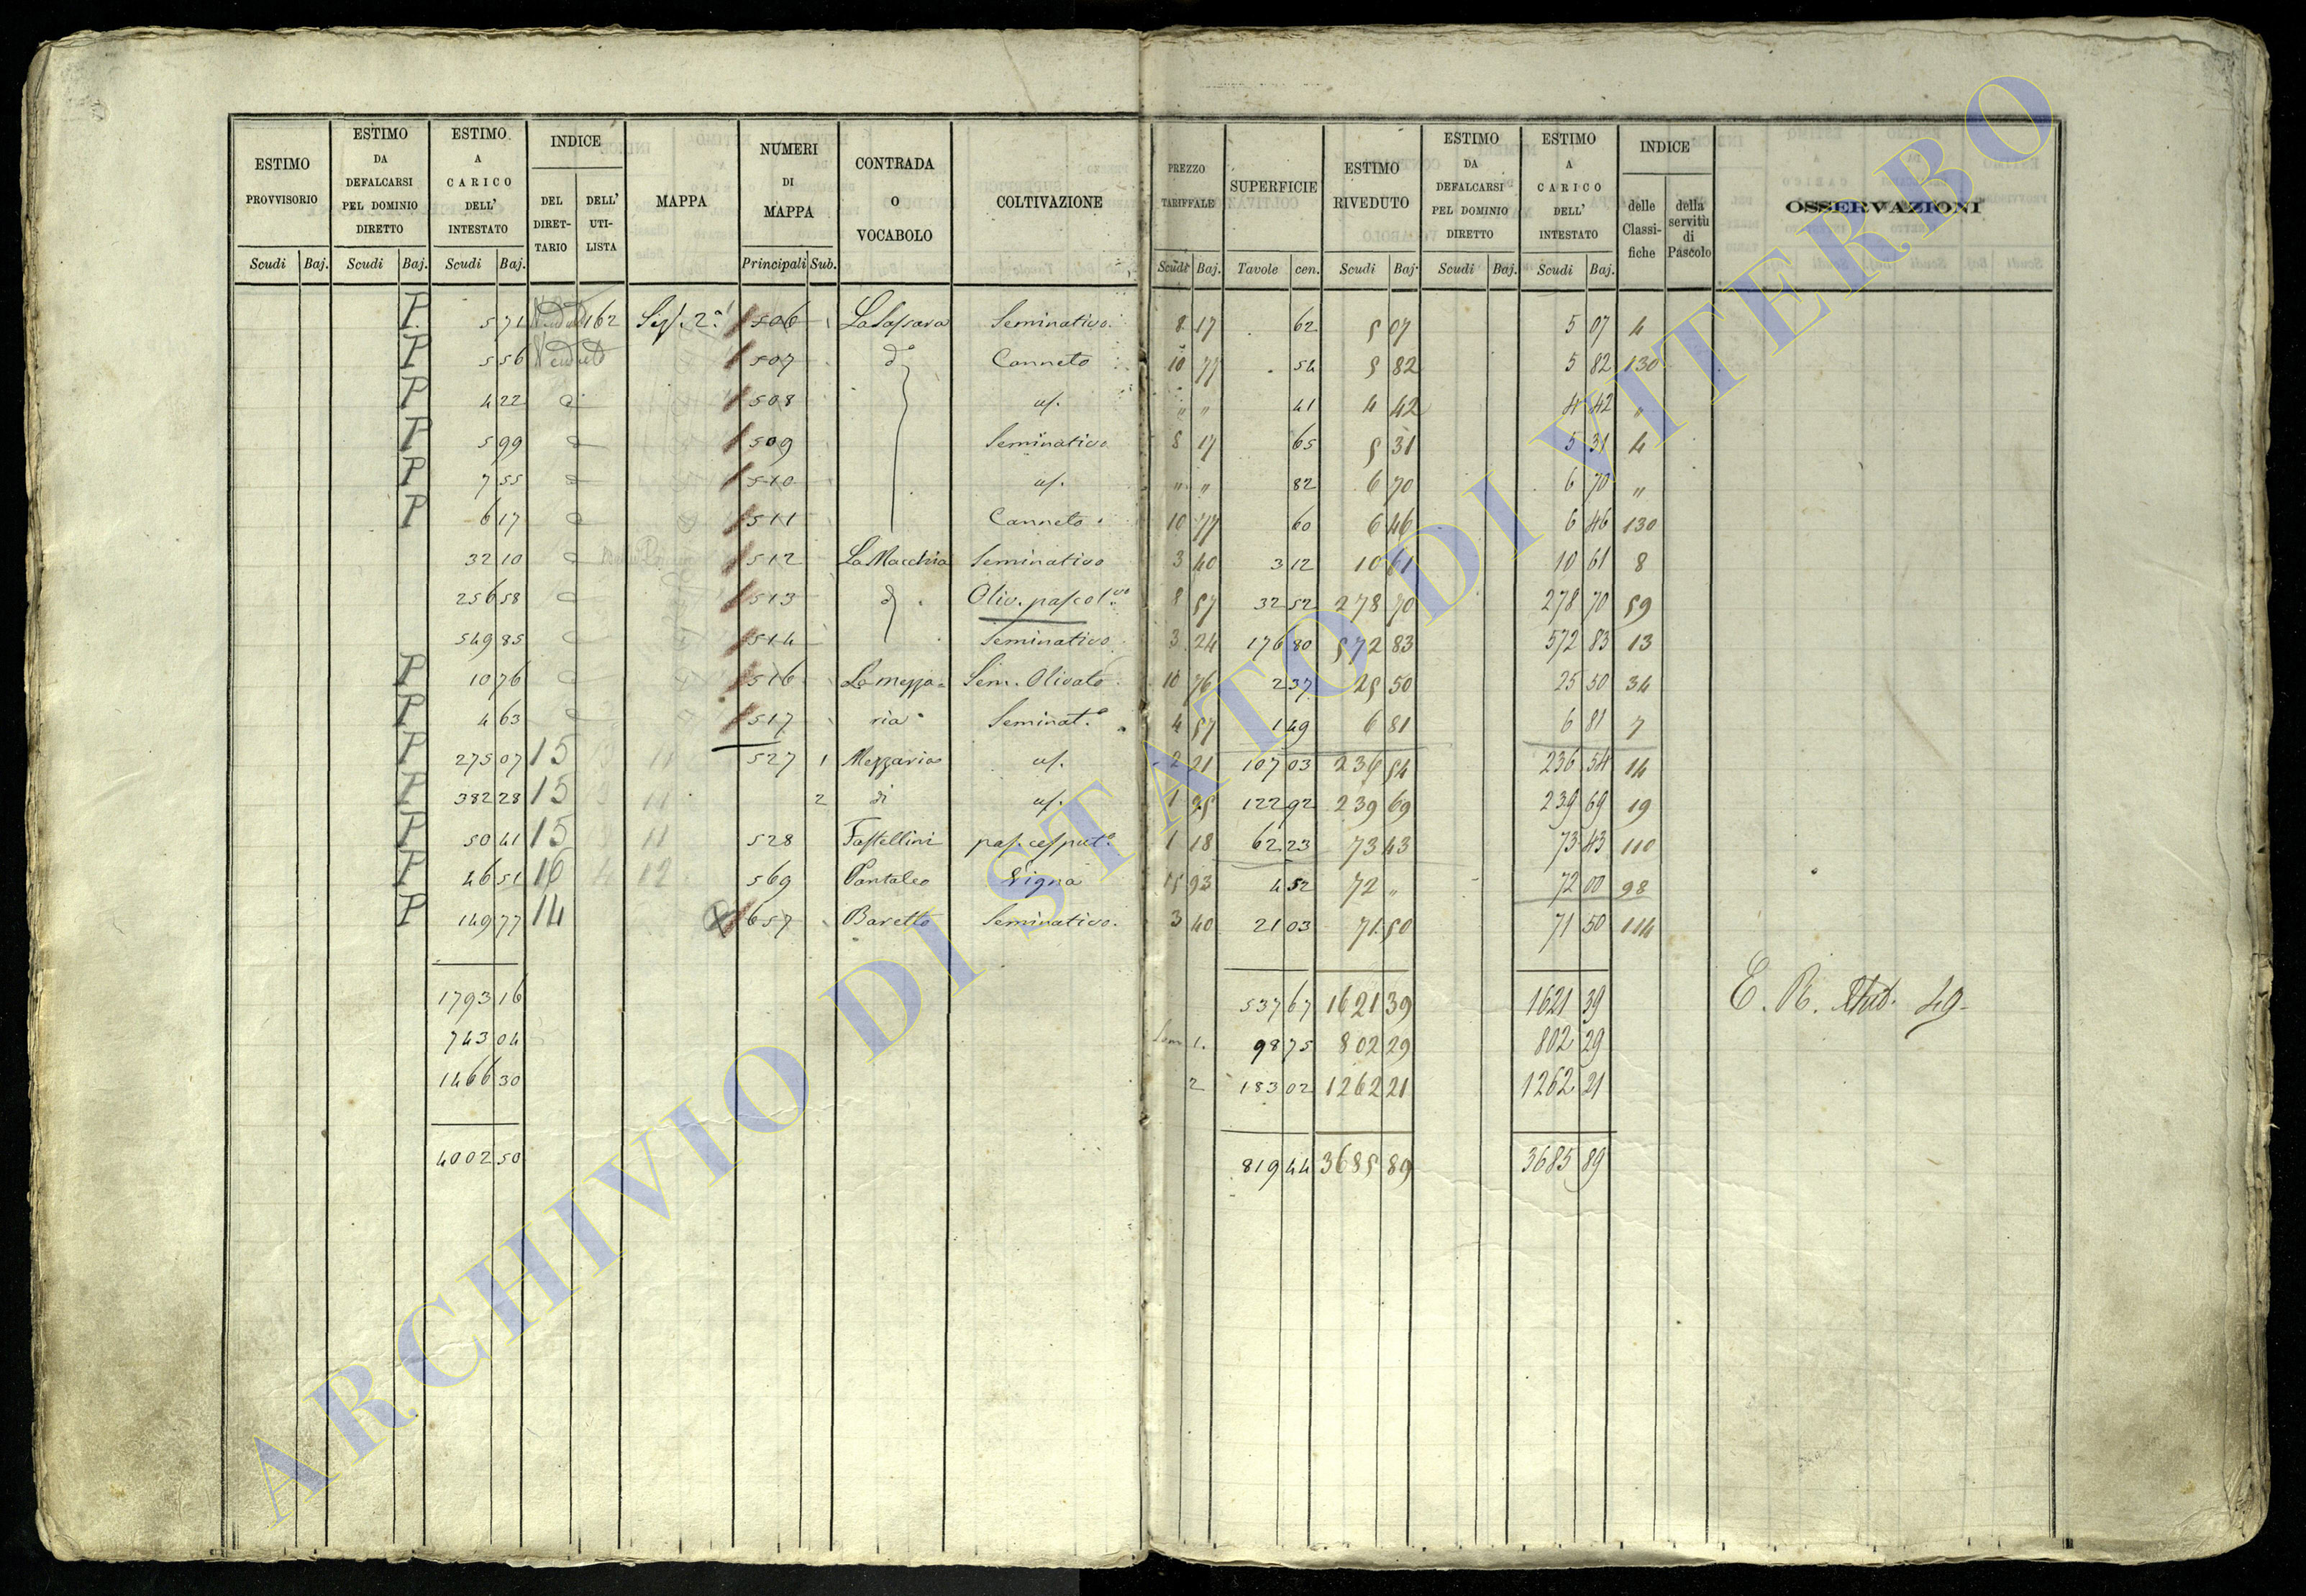 ESTIMO PROVVISORIO
ESTIMO DA DEFALCARSI PEL DOMINIO DIRETTO
ESTIMO A CARICO DELL' INTESTATO
INDICE
DEL DIRETTARIO
DELL' UTILISTA
MAPPA
NUMERI DI MAPPA
CONTRADA O VOCABOLO
COLTIVAZIONE
PREZZO TARIFFALE
SUPERFICIE
ESTIMO RIVEDUTO
ESTIMO DA DEFALCARSI PEL DOMINIO DIRETTO
ESTIMO A CARICO DELL' INTESTATO
INDICE
delle Classifiche
della servitù di Pascolo
OSSERVAZIONI
Scudi Baj. Scudi Baj. Scudi Baj. Principali Sub. Scudi Baj. Tavole cen. Scudi Baj. Scudi Baj. Scudi Baj.
P. 5 71 162 Sez. 2ª 506 Seminativo. 8 17 62 5 07 5 07 4
P 5 56 507 dº Canneto 10 77 54 5 82 5 82 130
P 4 22 508 " " 41 4 42 4 42 "
P 5 99 509 Seminativo 8 17 65 5 31 5 31 4
P 7 55 510 " " 82 6 70 6 70 "
P 6 17 511 Canneto 10 77 60 6 46 6 46 130
32 10 512 La Macchia Seminativo 3 40 3 12 10 61 10 61 8
256 58 513 Oliv. pascol.vo 8 57 32 52 278 70 278 70 59
549 85 514 Seminativo 3 24 176 80 572 83 572 83 13
P 10 76 516 La mezza= Sem. Olivato 10 76 2 37 25 50 25 50 34
P 4 63 517 ria Seminat.º 4 57 1 49 6 81 6 81 7
P 275 07 15 11 527 1 Mezzaria 2 21 107 03 236 54 236 54 14
P 382 28 15 11 2 di 1 95 122 92 239 69 239 69 19
P 50 41 15 11 528 Fastellini pas. cesput.º 1 18 62 23 73 43 73 43 110
P 46 51 16 4 12 569 Pantaleo Vigna 15 93 4 52 72 " 72 00 98
P 149 77 14 657 Baretto Seminativo. 3 40 21 03 71 50 71 50 114
1793 16 537 67 1621 39 1621 39 E. R. 49-
743 04 1. 98 75 802 29 802 29
1466 30 2 183 02 1262 21 1262 21
4002 50 819 44 3685 89 3685 89
ARCHIVIO DI STATO DI VITERBO